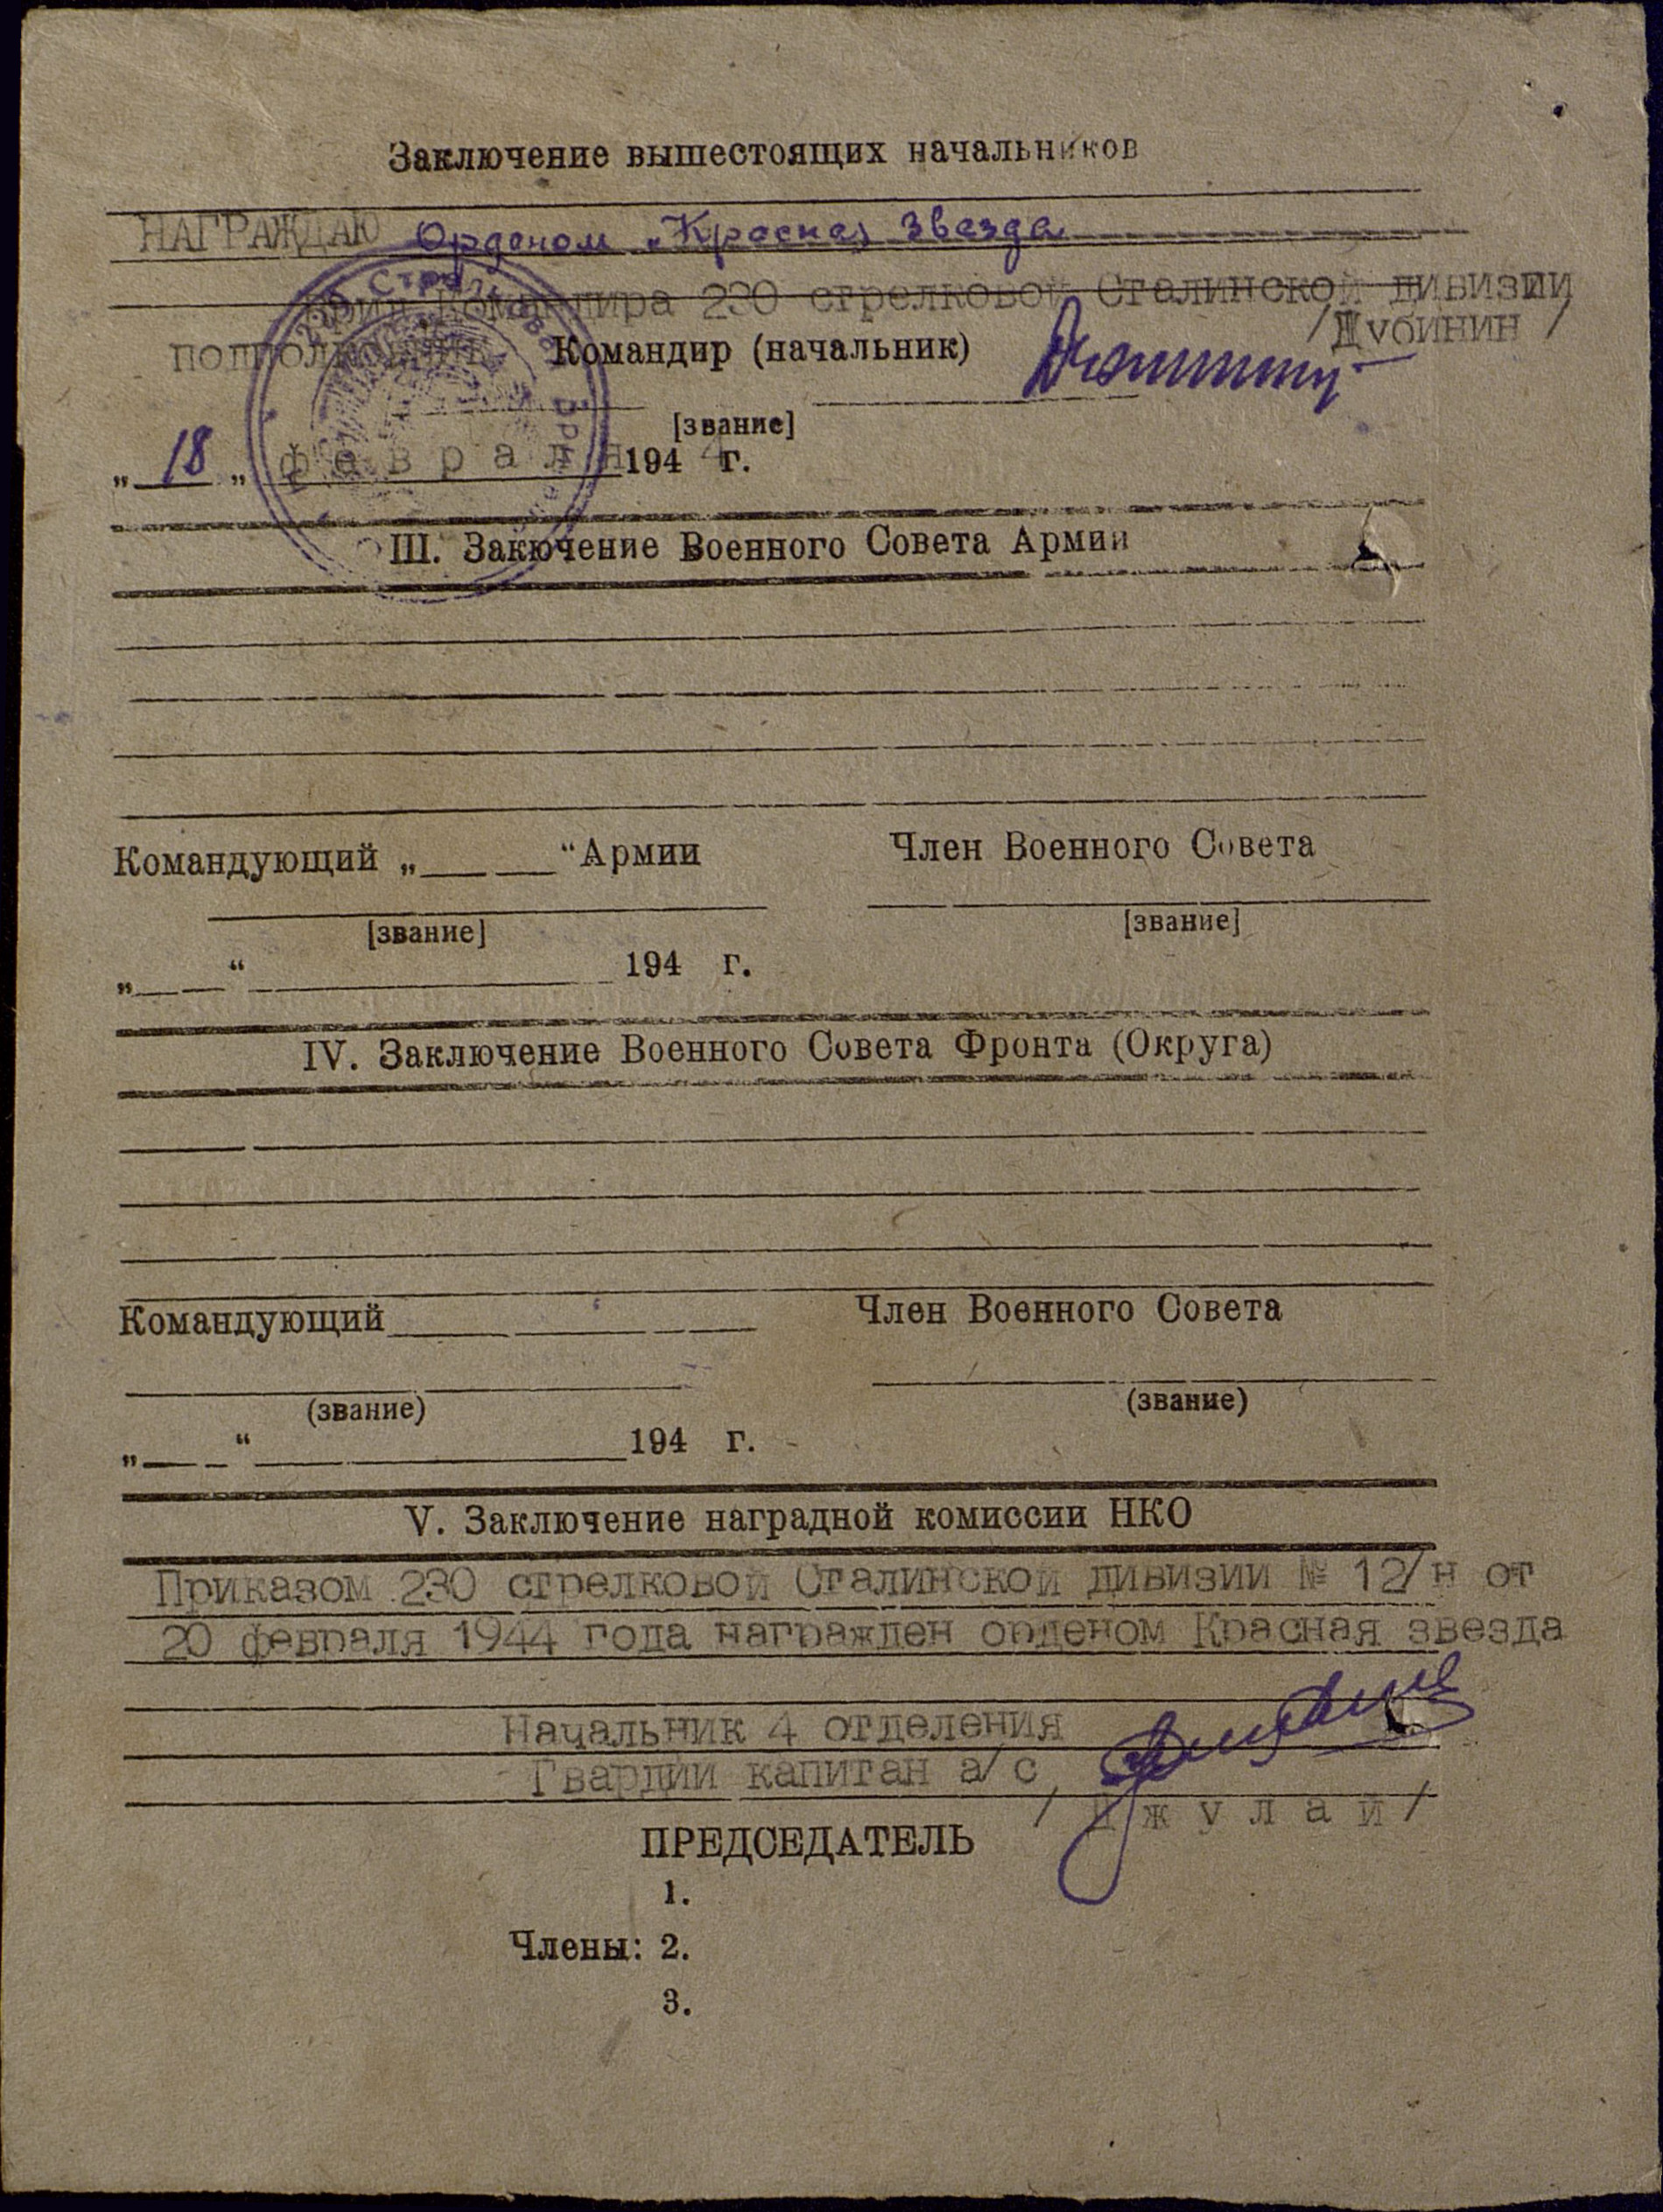 Заключение вышестоящих начальников
НАГРАЖДАЮ Орденом „Красная Звезда
Врид командира 230 стрелковой Сталинской дивизии
подполковник Командир (начальник) /Дубинин/
[звание]
„18„ февраля 1944 г.
III. Закючение Военного Совета Армии
Командующий „ “ Армии Член Военного Совета
[звание] [звание]
„ “ 194 г.
IV. Заключение Военного Совета Фронта (Округа)
Командующий Член Военного Совета
(звание) (звание)
„ “ 194 г.
V. Заключение наградной комиссии НКО
Приказом 230 стрелковой Сталинской дивизии № 12/н от
20 февраля 1944 года награжден орденом Красная звезда
Начальник 4 отделения
Гвардии капитан а/с
/ Джулай/
ПРЕДСЕДАТЕЛЬ
1.
Члены: 2.
3.